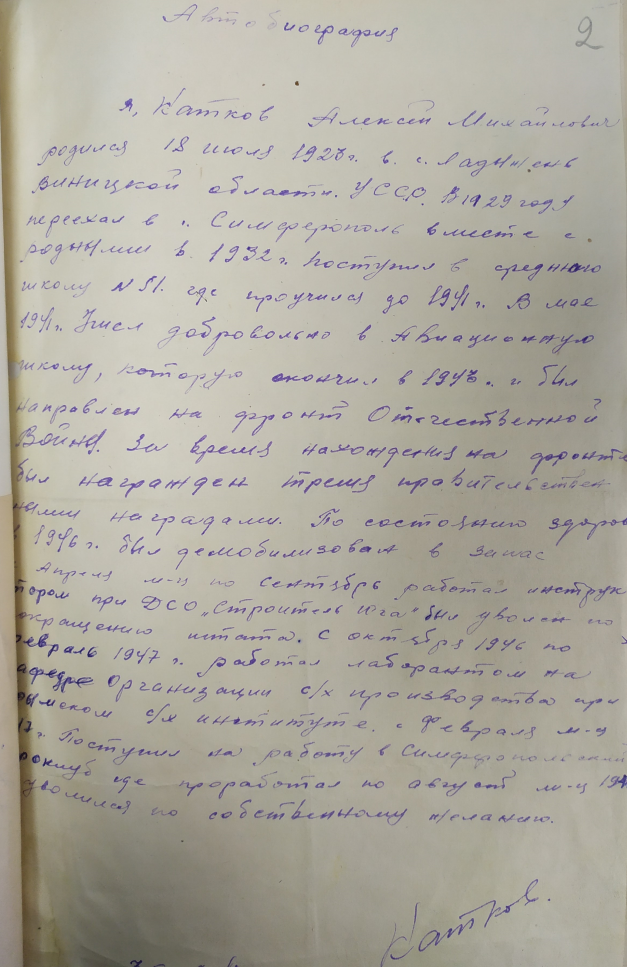 2
Автобиография
Я, Катков Алексей Михайлович
родился 18 июля 1923г. в. с. Ладыжень
Виницкой области. УССР. В 1929 году
переехал в г. Симферополь вместе с
родными в 1932 г. Поступил в среднюю
школу № 51. где проучился до 1941г. В мае
1941г. добровольно в Авиационную
школу, которую окончил в 1943 г. и был
направлен на фронт Отечественной
Войны. За время нахождения на фронте
был награжден тремя правительствен
ными наградами. По состоянию здоров
1946 г. был демобилизован в запас
Апреля м-ц по сентябрь работал инструк
тором при ДСО „Строитель Юга" был уволен по
окращению штата. С октября 1946 по
февраль 1947 г. работал лаборантом на
афедре Организации с/х производства при
рымском с/х институте. с Февраля м-ц
47 г. Поступил на работу в Симферопольский
роклуб где проработал по август м-ц 194
уволился по собственному желанию.
Катков.